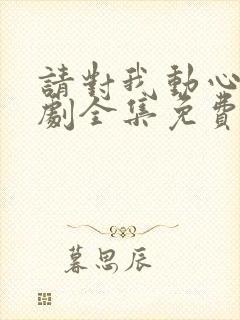 請對我動心
劇全集免費
暮思辰